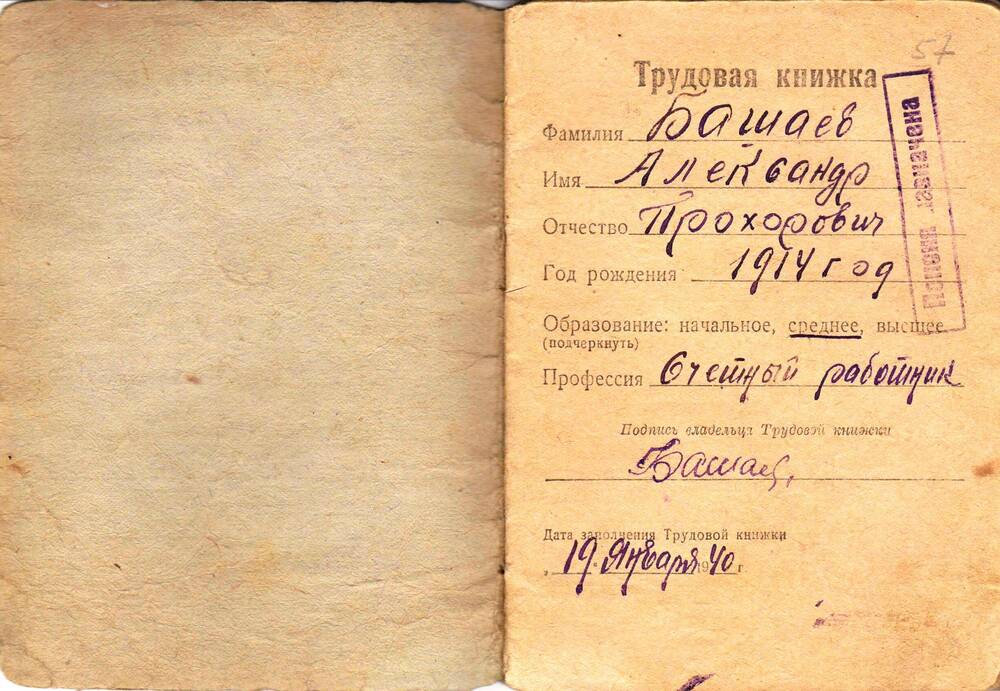 57
Трудовая книжка
Фамилия Башаев
Имя Александр
Отчество Прохорович
Год рождения 1914 год
Образование: начальное, среднее, высшее
(подчеркнуть)
Профессия Счетный работник
Подпись владельца Трудовой книжки
Башаев
Дата заполнения Трудовой книжки
„19" Января 1940 г.
Пенсия назначена